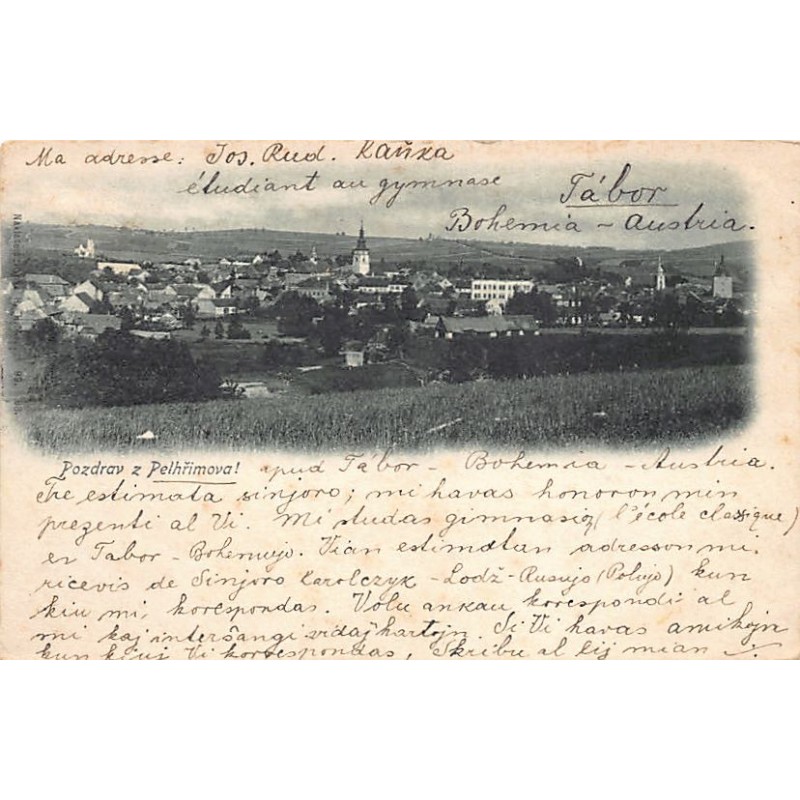 Ma adresse: Jos. Rud. Kaňka
étudiant au gymnase
Tábor
Bohemia - Austria.
Pozdrav z Pelhřimova! apud Tábor - Bohemia - Austria.
Tre estimata sinjoro; mi havas honoron min
prezenti al Vi. Mi studas gimnazio (l'école classique)
en Tabor - Bohemujo. Vian estimatan adresson mi
ricevis de Sinjoro Karolczyk - Lodž - Rusujo (Polujo) kun
kiu mi korespondas. Volu ankau korespondi al
mi kaj interŝangi vidajkartojn. Si Vi havas amikojn
kun kiuj Vi korrespondas, Skribu al lij mian